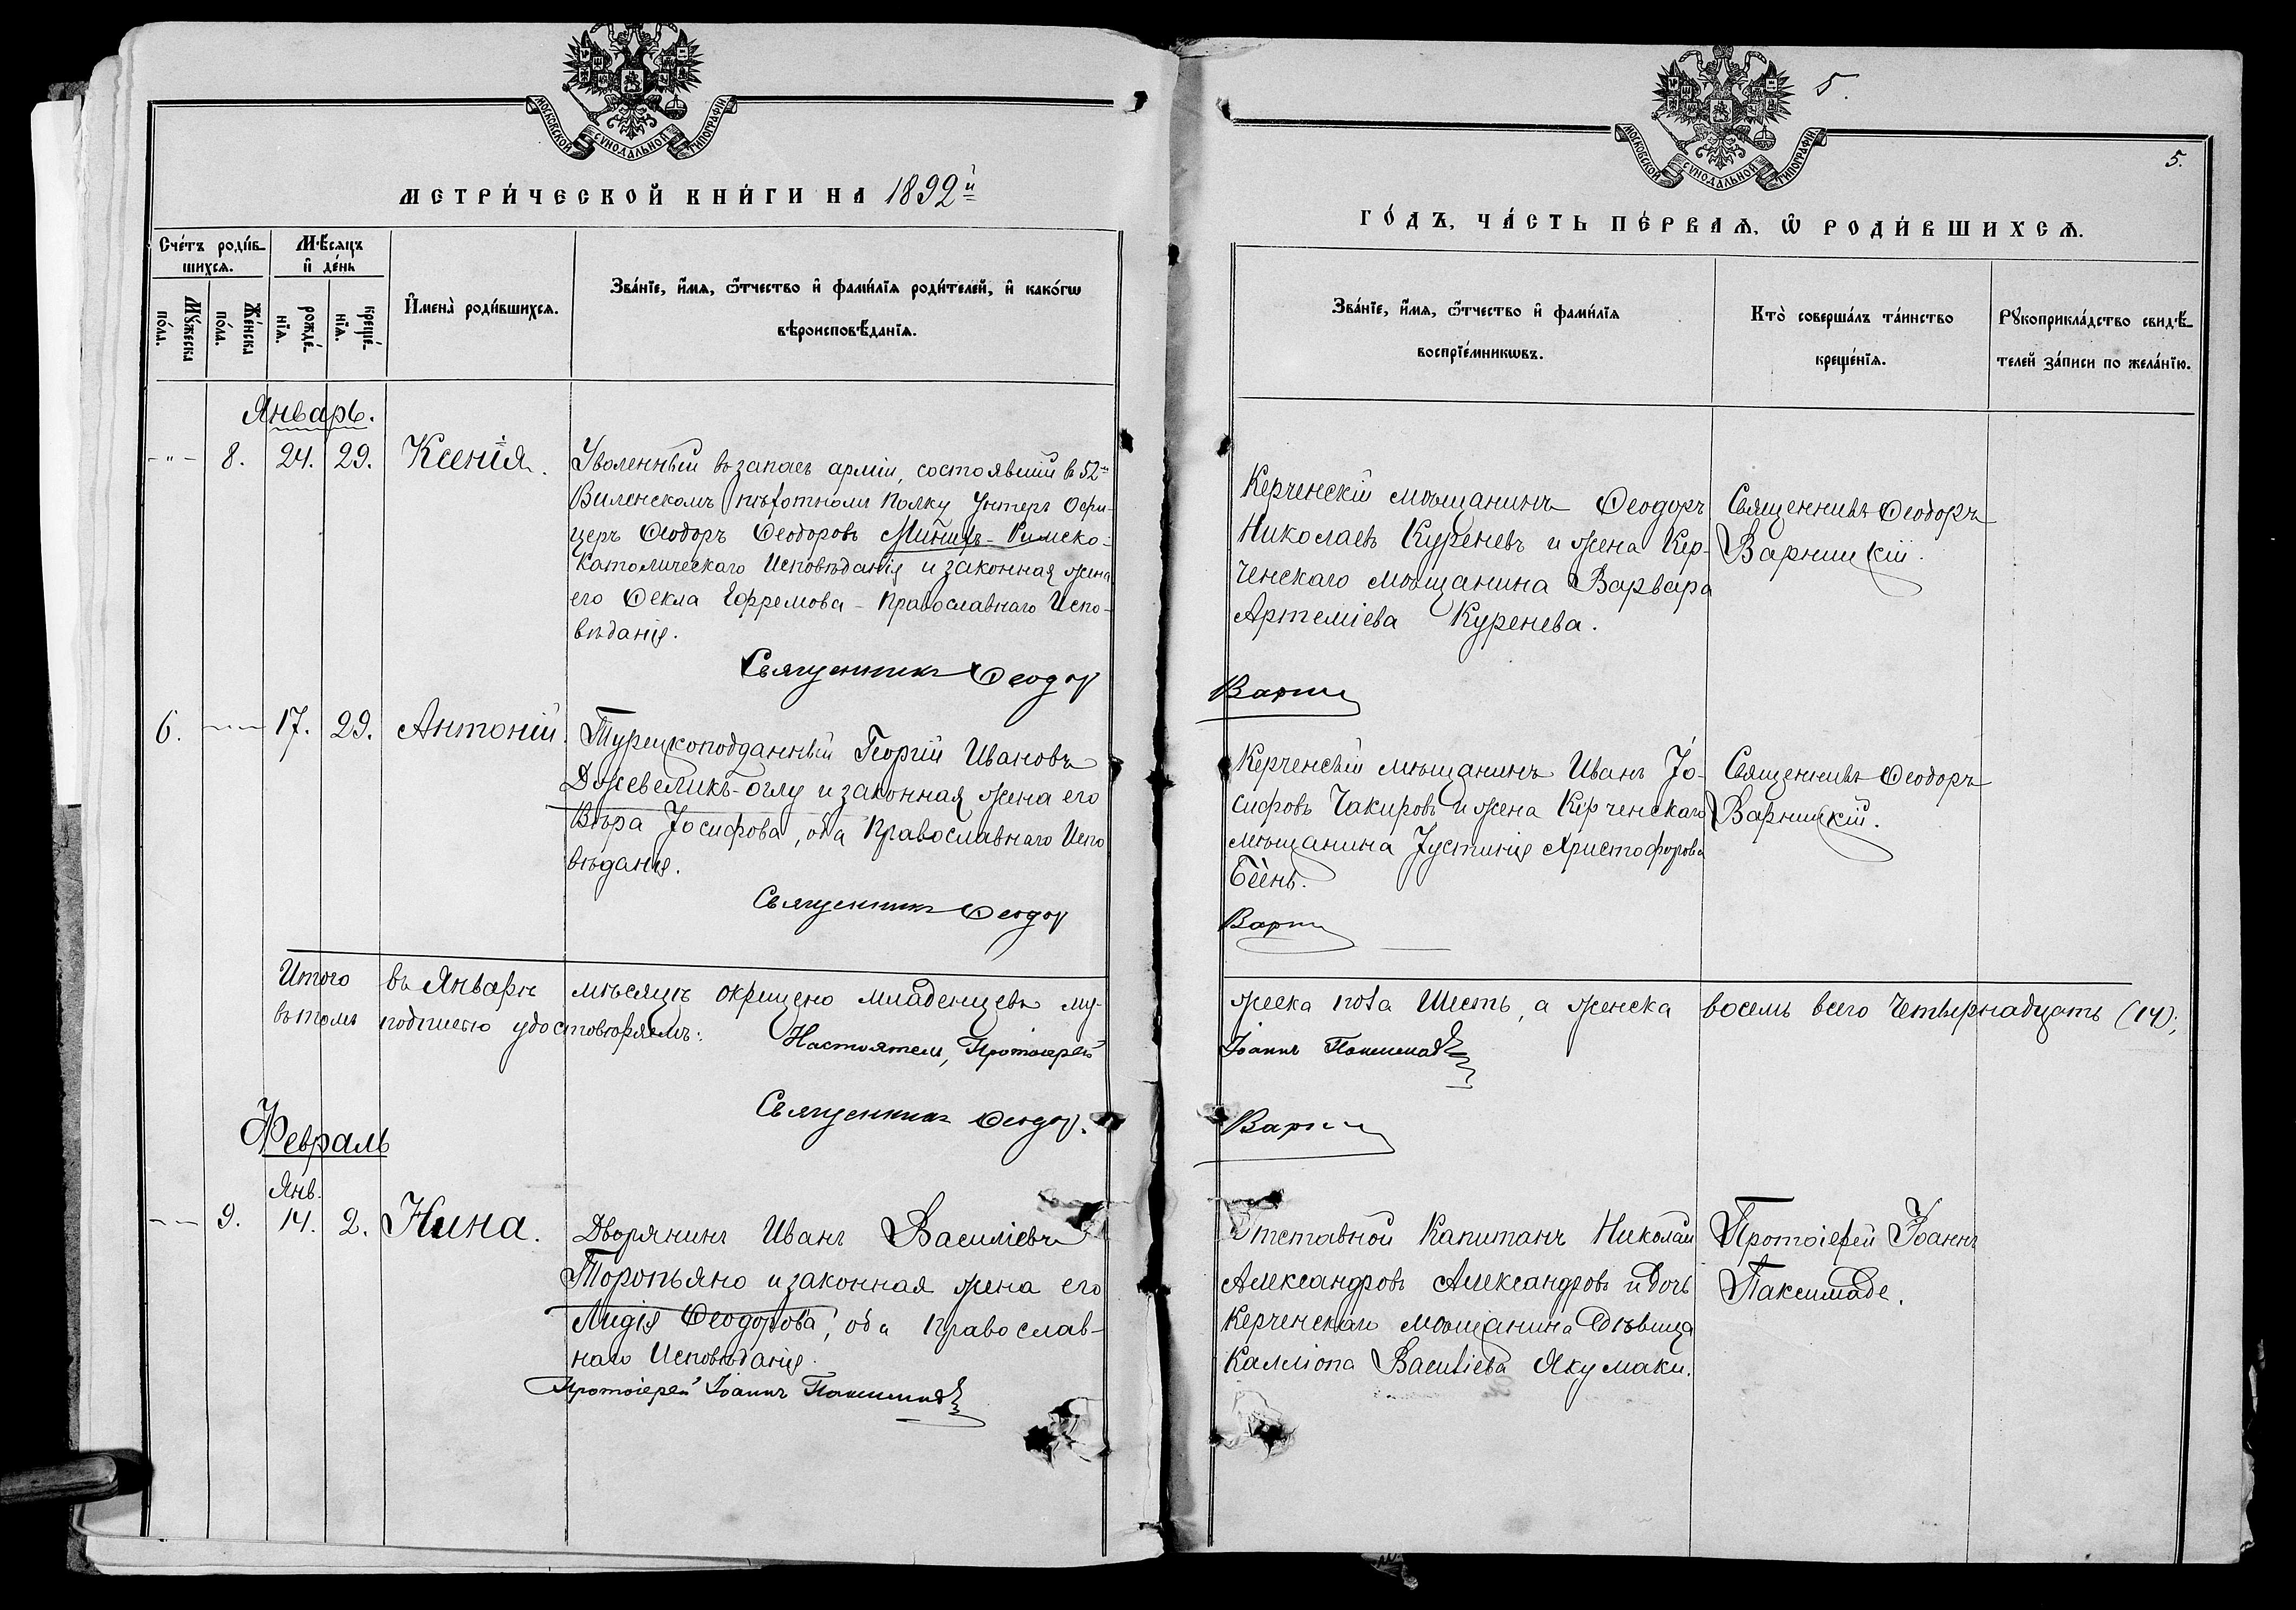 МОСКОВСКОЙ СѴНОДАЛЬНОЙ ТИПОГРАФІИ
МЕТРИ́ЧЕСКОЙ КНИ́ГИ НА 1892й
Сче́тъ роди́в-
шихсѧ.
Мѣ́сяцъ
и҆ де́нь
Мꙋ́жеска
по́ла.
Же́нска
по́ла.
рожде́-
нїѧ.
креще́-
нїѧ.
И҆мена̀ роди́вшихсѧ.
Зва́нїе, и҆́мѧ, ѻ҆́тчество и҆ фами́лїѧ роди́телей, и҆ како́гѡ
вѣроисповѣ́данїѧ.
Январь.
- " - 8. 24. 29. Ксенія.
Уволенный въ запасъ арміи, состоявшій в 52мъ
Виленскомъ пѣхотномъ полку Унтеръ Офи-
церъ Ѳеодоръ Ѳеодоровъ Римско-
Католическаго Исповѣданія и законная жена
его Ѳекла Ефремова - Православнаго Испо-
вѣданія.
Священникъ Ѳеодор
6. — 17. 29. Антоній.
Турецкоподданный Георгій Ивановъ
Джевеликъ-оглу и законная жена его
Вѣра Іосифова, оба Православнаго Испо
вѣданія.
Священникъ Ѳеодор
Итого въ Январѣ мѣсяцѣ окрещено младенцевъ му-
въ томъ подписью удостовѣряемъ:
Настоятель, Протоіерей
Священникъ Ѳеодор.
Февраль
Янв.
- - 9. 14. 2. Нина.
Дворянинъ Иванъ Василіевъ
Торопьяно и законная жена его
Лидія Ѳеодорова, оба православ-
наго Исповѣданія.
Протоіерей Іоаннъ Паксимаде
5.
МОСКОВСКОЙ СѴНОДАЛЬНОЙ ТИПОГРАФІИ
5.
ГО́ДЪ, ЧА́СТЬ ПЕ́РВАѦ, Ѡ҆ РОДИ́ВШИХСѦ.
Зва́нїе, и҆́мѧ, ѻ҆́тчество и҆ фами́лїѧ
воспрїе́мникѡвъ.
Кто̀ соверша́лъ та́инство
креще́нїѧ.
Рꙋкоприкла́дство свидѣ́-
телей за́писи по жела́нїю.
Керченскій мѣщанинъ Ѳеодоръ
Николаевъ Куреневъ и жена Кер-
ченскаго мѣщанина Варвара
Артеміева Куренева.
Священникъ Ѳеодоръ
Варницкій.
Варни
Керченскій мѣщанинъ Иванъ Іо-
сифовъ Чакировъ и жена Керченскаго
мѣщанина Іустинія Христофорова
Священникъ Ѳеодоръ
Варницкій.
Варни
жеска пола Шесть, а женска восемь всего Четырнадцать (14);
Іоаннъ Паксимаде
Варни
Отставной Капитанъ Николай
Александровъ Александровъ и дочь
Керченскаго мѣщанина дѣвица
Калліопа Василіева Якумаки.
Протоіерей Іоаннъ
Паксимаде.